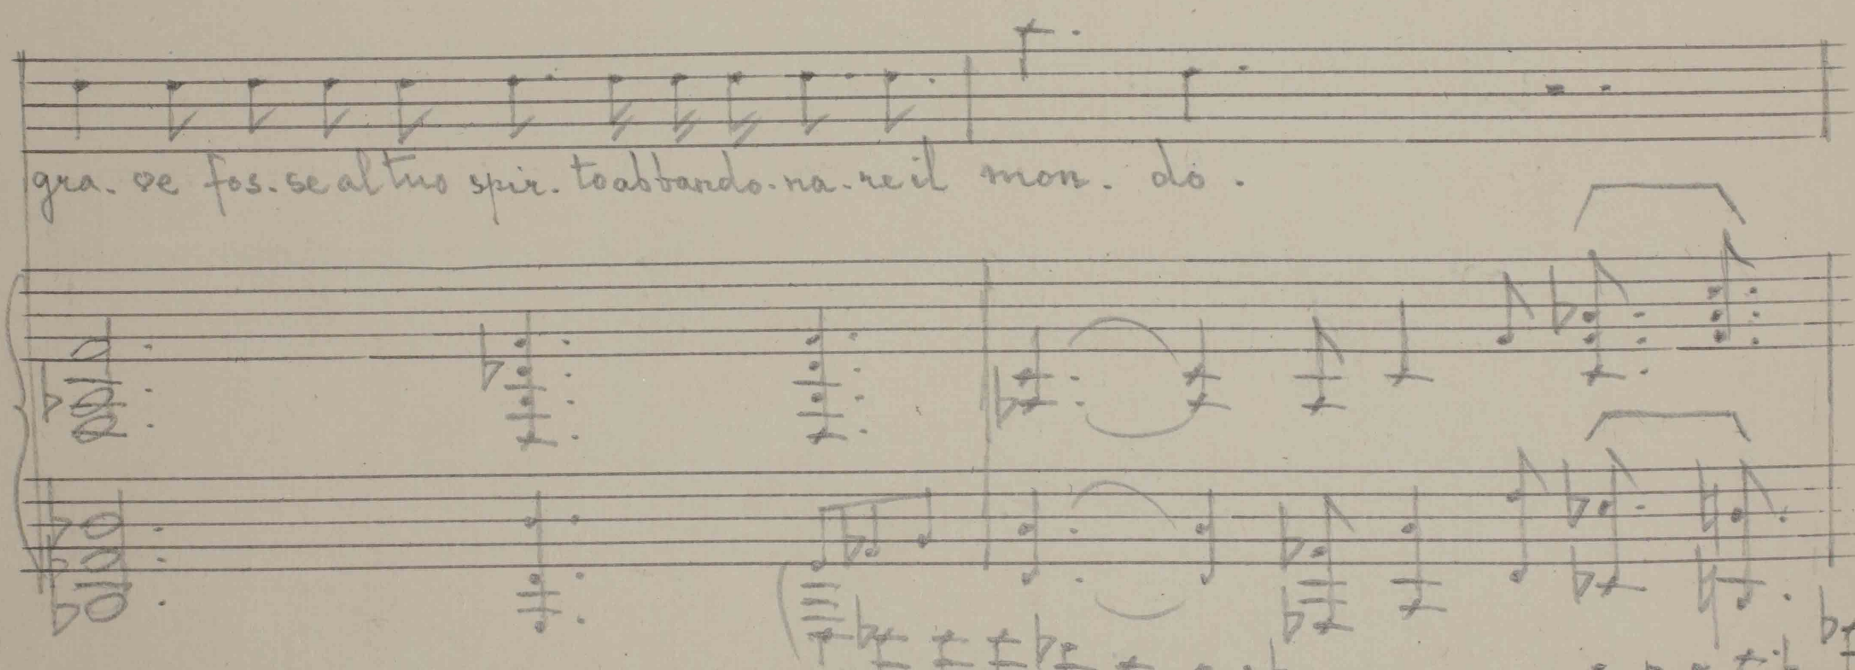 gra. ve fos. se al tuo spir. to abbando. na. re il mon. do.